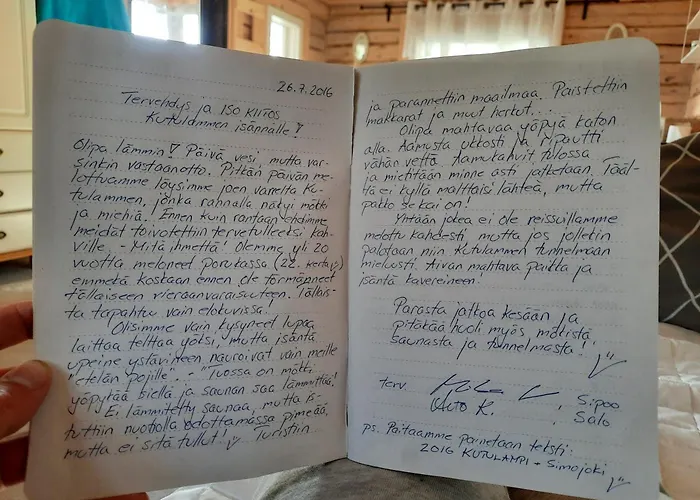 26.7.2016
Tervehdys ja ISO KIITOS
Kutulammen isännälle!
Olipa lämmin! Päivä, vesi, mutta var-
sinkin vastaanotto. Pitkän päivän me-
lottuamme löysimme joen varrelta Ku-
tulammen, jonka rannalla näkyi mökki
ja miehiä! Ennen kuin rantaan ehdimme
meidät toivotettiin tervetulleeksi kah-
ville. - Mitä ihmettä! Olemme yli 20
vuotta meloneet porukassa (22. kerta)
emmekä koskaan ennen ole törmänneet
tällaiseen vieraanvaraisuuteen. Tällais-
ta tapahtuu vain elokuvissa.
Olisimme vain kysyneet lupaa
laittaa telttaa yöksi, mutta isäntä
upeine ystävineen nauroivat vain meille
"etelän pojille". - "Tuossa on mökki
yöpykää siellä ja saunan saa lämmittää!
Ei lämmitetty saunaa, mutta is-
tuttiin nuotiolla odottamassa pimeää,
mutta ei sitä tullut! Turistiin
ja parannettiin maailmaa. Paistettiin
makkarat ja muut herkut...
Olipa mahtavaa yöpyä katon
alla. Aamusta ukkosti ja ripautti
vähän vettä. Aamukahvit tulossa
ja miehtään minne asti jatketaan. Tääl-
tä ei kyllä malttaisi lähteä, mutta
pakko se kai on!
Yhtään jokea ei ole reissuillamme
melottu kahdesti, mutta jos jollekin
palataan niin Kutulammen tunnelmaan
mieluusti. Aivan mahtava paikka ja
isäntä kavereineen!
Parasta jatkoa kesään ja
pitäkää huoli myös mökistä,
saunasta ja tunnelmasta!
terv.
K. , Sipoo
Salo
ps. Paitaamme painetaan teksti:
2016 KUTULAMPI - Simojoki